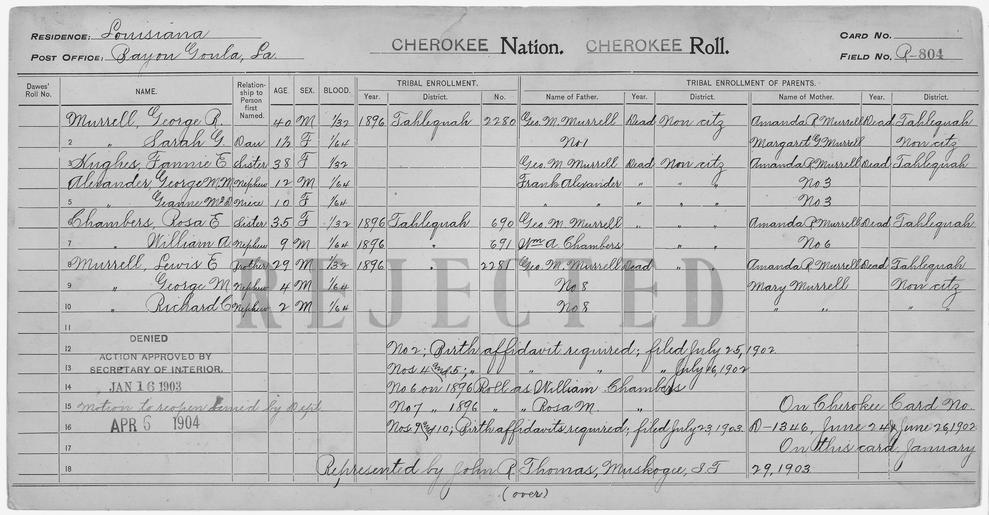 RESIDENCE: Louisiana
POST OFFICE: Bayou Goula, La.
CHEROKEE Nation. CHEROKEE Roll.
CARD NO.
FIELD NO. R-804
Dawes' Roll No. NAME. Relationship to Person first Named. AGE. SEX. BLOOD. TRIBAL ENROLLMENT. Year. District. No. TRIBAL ENROLLMENT OF PARENTS. Name of Father. Year. District. Name of Mother. Year. District.
Murrell, George R. 40 M 1/32 1896 Tahlequah 2280 Geo. M. Murrell Dead Non citz Amanda R Murrell Dead Tahlequah
2 " Sarah G. Dau 1½ F 1/64 No 1 Margaret G Murrell Non citz
3 Hughes, Fannie E Sister 38 F 1/32 Geo. M Murrell Dead Non citz Amanda R Murrell Dead Tahlequah
Alexander, George M. M Nephew 12 M 1/64 Frank Alexander " " " No 3
5 " Niece 10 F 1/64 " " " " " No 3
Chambers, Rosa E Sister 35 F 1/32 1896 Tahlequah 690 Geo. M. Murrell " " Amanda R Murrell Dead Tahlequah
7 " William A Nephew 9 M 1/64 1896 " 691 Wm A Chambers " " No 6
8 Murrell, Lewis E Brother 29 M 1/32 1896 " 2281 Geo. M. Murrell Dead " " Amanda R Murrell Dead Tahlequah
9 " George M Nephew 4 M 1/64 No 8 Mary Murrell Non citz
10 " Richard C Nephew 2 M 1/64 No 8 " " "
REJECTED
11
12 No 2; Birth affidavit required; filed July 25, 1902
13 Nos 4 and 5; " " " " July 16, 1902
14 No 6 on 1896 Roll as William Chambers
15 No 7 " 1896 " " Rosa M. " On Cherokee Card No.
16 Nos 9 and 10; Birth affidavits required; filed July 23, 1903. D-1346, June 24 & June 26, 1902
17 On this card, January
18 Represented by John R. Thomas, Muskogee, I T 29, 1903
DENIED
ACTION APPROVED BY
SECRETARY OF INTERIOR.
JAN 16 1903
Motion to reopen denied by Dept
APR 6 1904
(over)